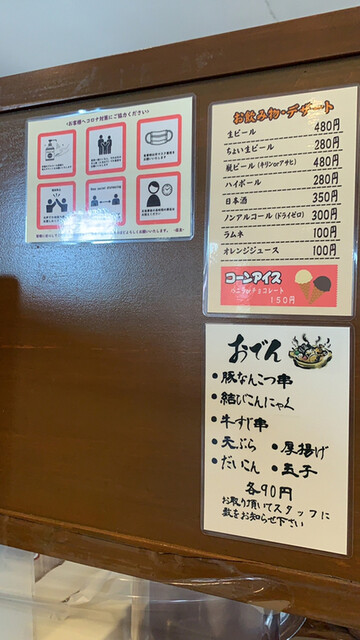 <お客様へコロナ対策にご協力ください>
お飲み物・デザート
生ビール 480円
ちょい生ビール 280円
瓶ビール(キリンorアサヒ) 480円
ハイボール 280円
日本酒 350円
ノンアルコール(ドライゼロ) 300円
ラムネ 100円
オレンジジュース 100円
コーンアイス
バニラ/チョコレート
150円
おでん
・豚なんこつ串
・結びこんにゃく
・牛すじ串
・天ぷら ・厚揚げ
・だいこん ・玉子
各90円
お取り頂いてスタッフに
数をお知らせ下さい